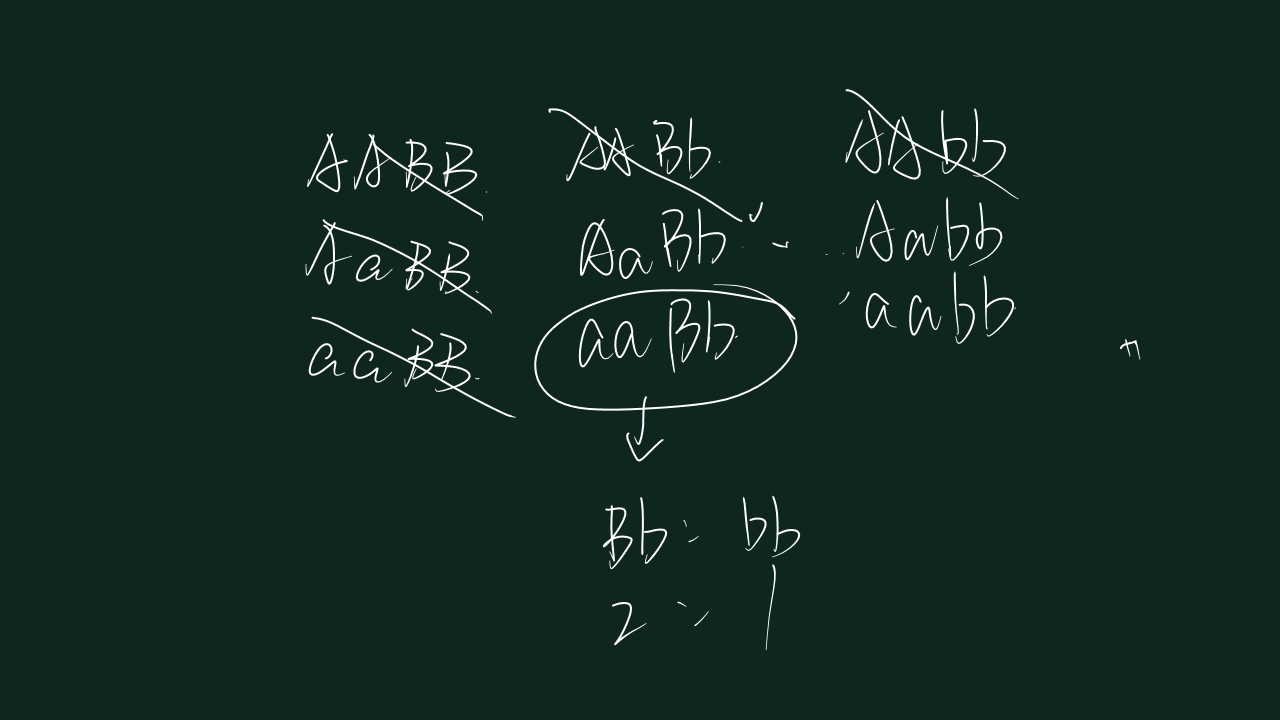 AABB AABb AAbb
AaBB AaBb Aabb
aaBB aaBb aabb
Bb : bb
2 : 1